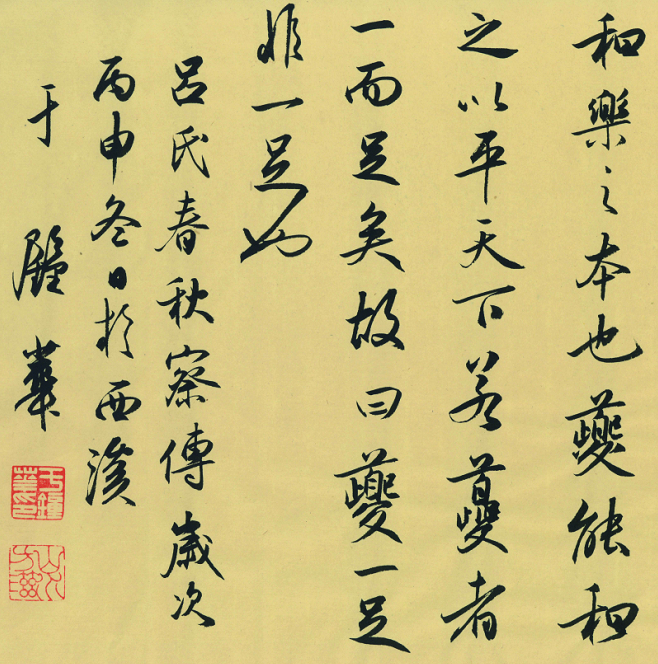 和樂之本也夔能和
之以平天下若夔者
一而足矣故曰夔一足
非一足也
呂氏春秋察傳歲次
丙申冬日於西溪
于鍾華
于鍾華印